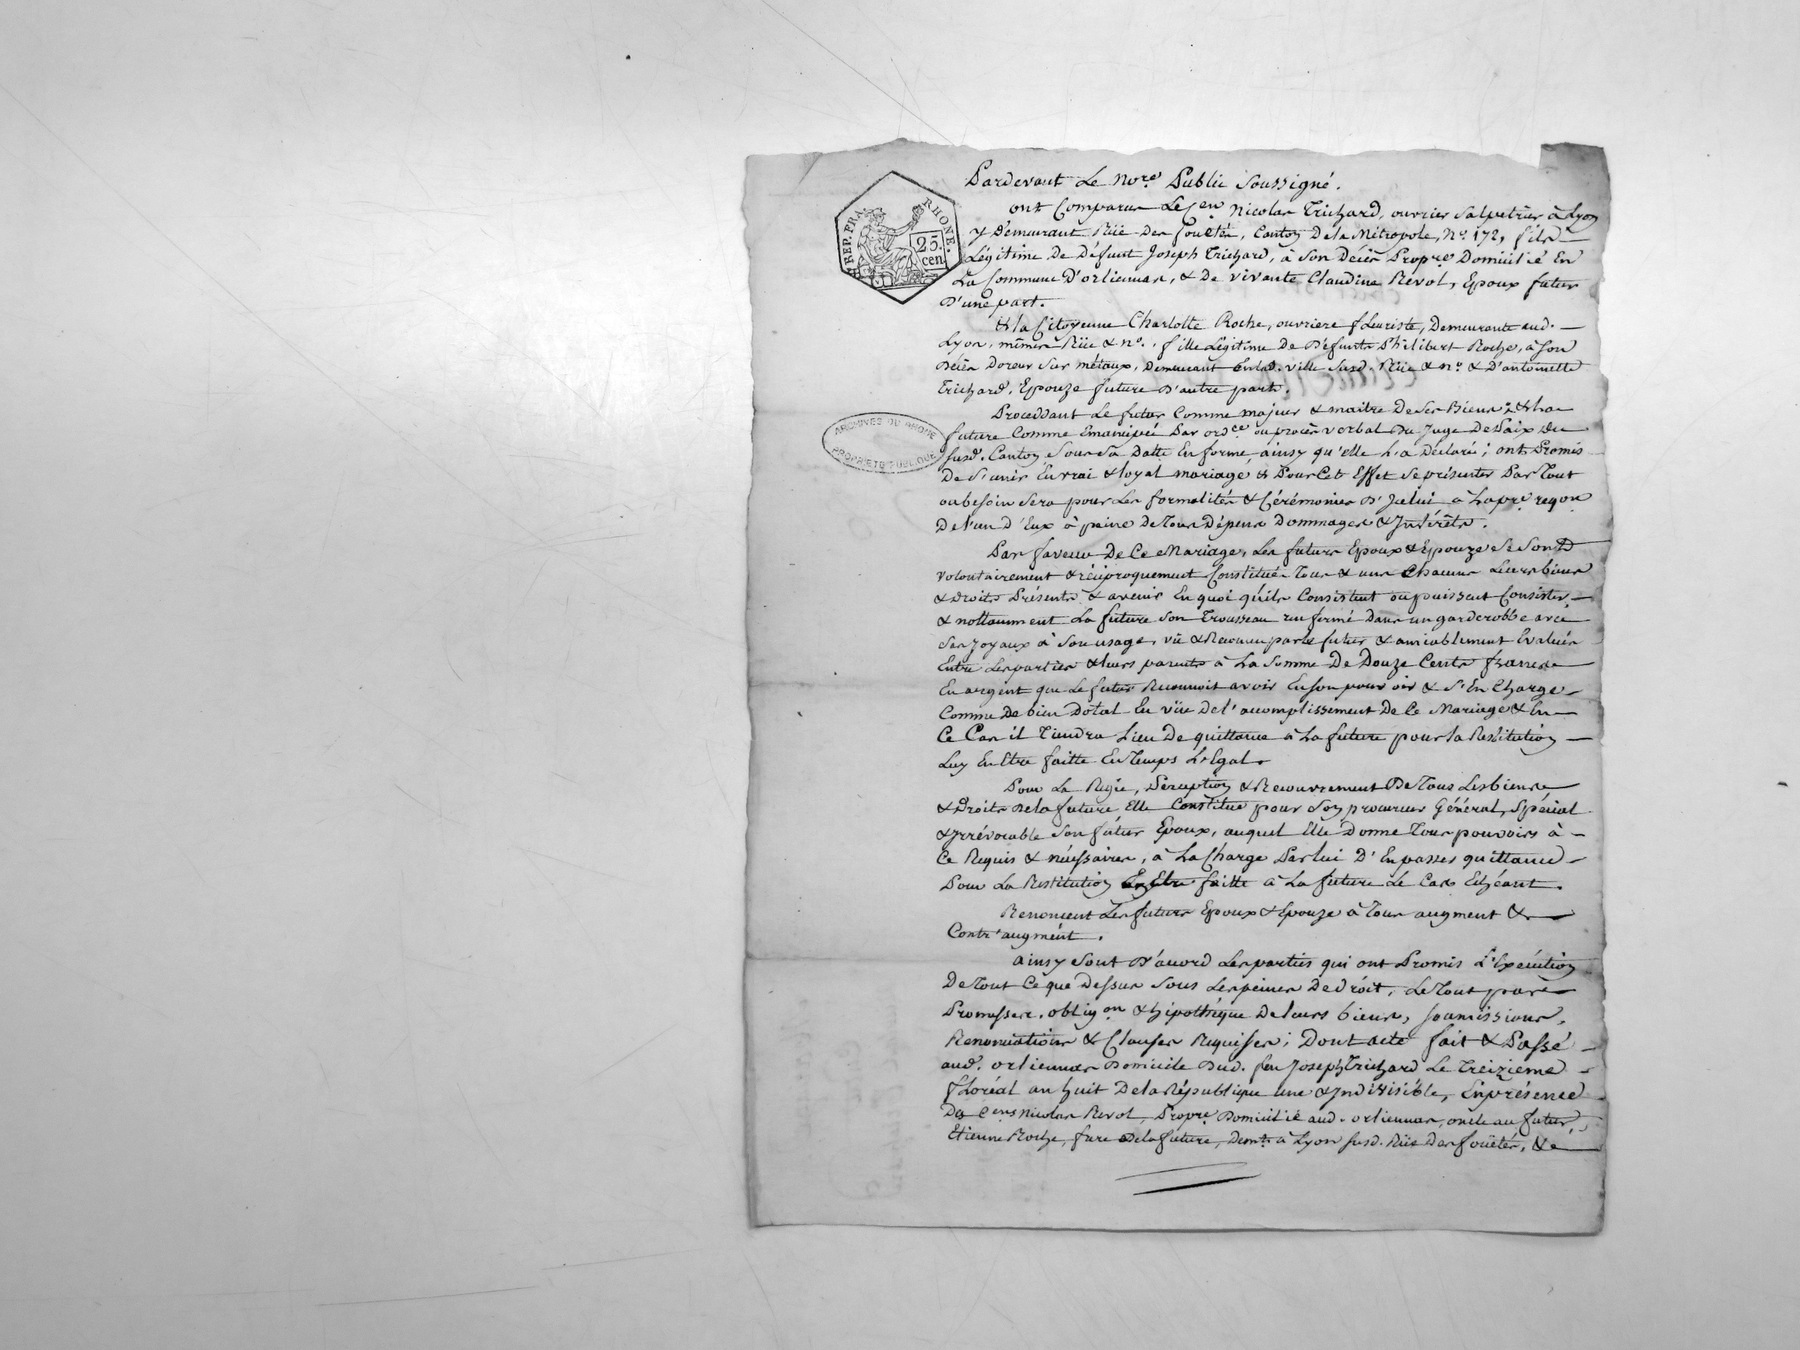 REP. FRA. RHONE.
25 cen
ARCHIVES DU RHONE
PROPRIETE PUBLIQUE
Pardevant Le No.re Public Soussigné.
ont Comparus Le C.en Nicolas Trichard, ouvrier Salpetrier à Lyon
y Demeurant Rüe Des fouetés, Canton De la Métropole, N.o 172, fils
Légitime De Défunt Joseph Trichard, à Son Décès Propre Domicilié En
La Commune D'orliennas, & De vivante Claudine Revol, Epoux futur
D'une part.
& la Citoyenne Charlotte Roche, ouvriere fleuriste, Demeurante aud.
Lyon, mêmes Rüe & n.o, fille Légitime De Défunts Philibert Roche, à Son
Décès Doreur Sur métaux, Demeurant En lad. ville Susd. Rüe & n.o & D'antoinette
Trichard, Epouze future D'autre part.
Proceddant Le futur Comme majeur & maitre De Ses Biens, & la
future Comme Emancipée Par ord.ce ou procès verbal Du Juge De Paix Du
Susd. Canton Sous Sa Datte En forme ainsy qu'elle L'a Déclaré; ont Promis
De S'unir En vrai & loyal mariage & Pour Cet Effet Se présenter Par Tout
ou besoin Sera pour Les formalités & Cérémonies D'Jcelui à La pre. reqon
De l'un D'Eux à peine De Tous Dépens Dommages & Intérêts.
Par faveur De Ce Mariage, Les futurs Epoux & Epouze Se Sont
volontairement & réciproquement Constitués Tous & uns Chacuns Leurs biens
& Droits Présents & avenir En quoi qu'ils Consistent ou puissent Consister,
& nottamment La future Son Trousseau renfermé Dans un garderobbe avec
Ses Joyaux à Son usage, vû & Reconnu par le futur & amiablement Evalués
Entre Les parties & leurs parents à La Somme De Douze Cents francs
En argent que Le futur Reconnoit avoir En Son pouvoir & S'En Charge
Comme De bien Dotal En vüe De l'accomplissement De Ce Mariage & En
Ce Cas il Tiendra Lieu De quittance à La future pour la Restitution
Luy En Etre faitte En Temps L'Egal.
Pour La Régie, Perception & Recouvrement De Tous Les biens
& Droits De la future Elle Constitue pour Son procureur Général, Spécial
& Irrévocable Son futur Epoux, auquel Elle Donne Tous pouvoirs à
Ce Requis & nécessaires, à La Charge Par lui D'En passer quittance
Pour La Restitution En Etre faitte à La future Le Cas Echéant.
Renoncent Les futurs Epoux & Epouze à Tous augment &
Contr'augment.
ainsy Sont D'accord Les parties qui ont Promis L'Exécution
De Tout Ce que Dessus Sous Les peines De Droit, Le Tout par
Promesses, oblig.on & hipothéque De leurs biens, Soumissions,
Renonciations & Clauses Requises; Dont acte fait & Passé
aud. orliennas Domicile Dud. feu Joseph Trichard Le Treizieme
floréal an huit De la République une & Indivisible, En présence
Des C.ens Nicolas Revol, Propre. Domicilié aud. orliennas, oncle au futur,
Etienne Roche, frere De la future, Dem.t à Lyon Susd. Rüe Des fouëtés, &